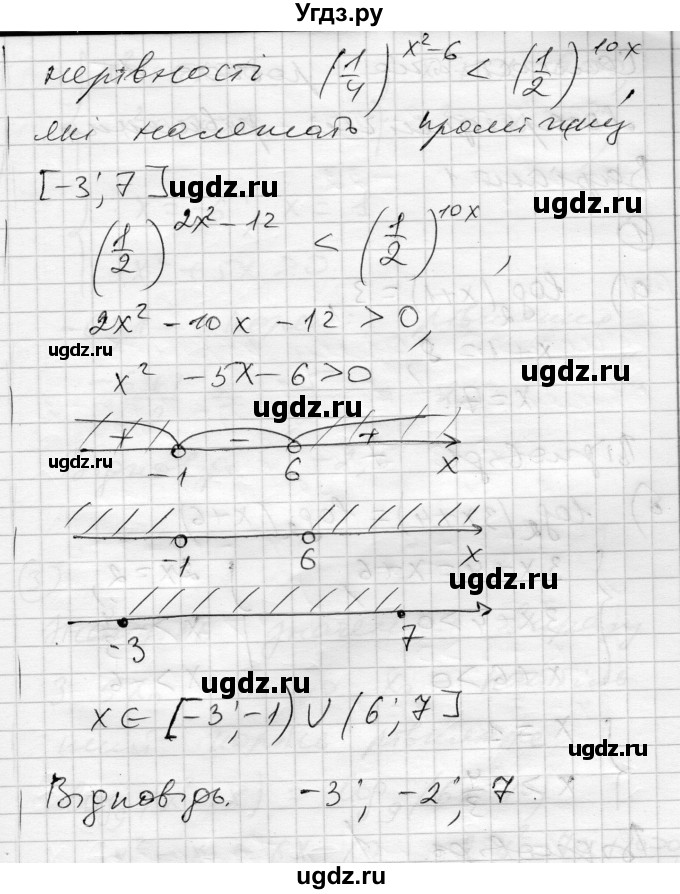 Угдз.ру
нерівності (1/4)^(x²-6) < (1/2)^(10x),
які належать проміжку
[-3; 7] ugdz.ru
ugdz.ru
(1/2)^(2x²-12) < (1/2)^(10x),
2x² - 10x - 12 > 0,
ugdz.ru
x² - 5x - 6 > 0
ugdz.ru
ugdz.ru
+ - +
ugdz.ru
-1 6 x
-1 6 x
ugdz.ru
-3 7
ugdz.ru
x ∈ [-3; -1) ∪ (6; 7]
ugdz.ru
Відповідь. -3; -2; 7.
ugdz.ru
ugdz.ru